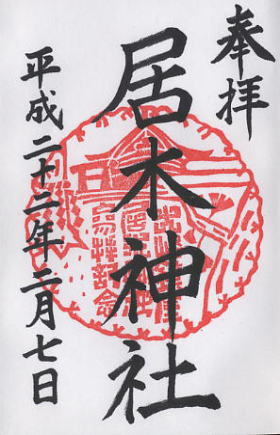 奉拝
居木神社
平成二十二年二月七日